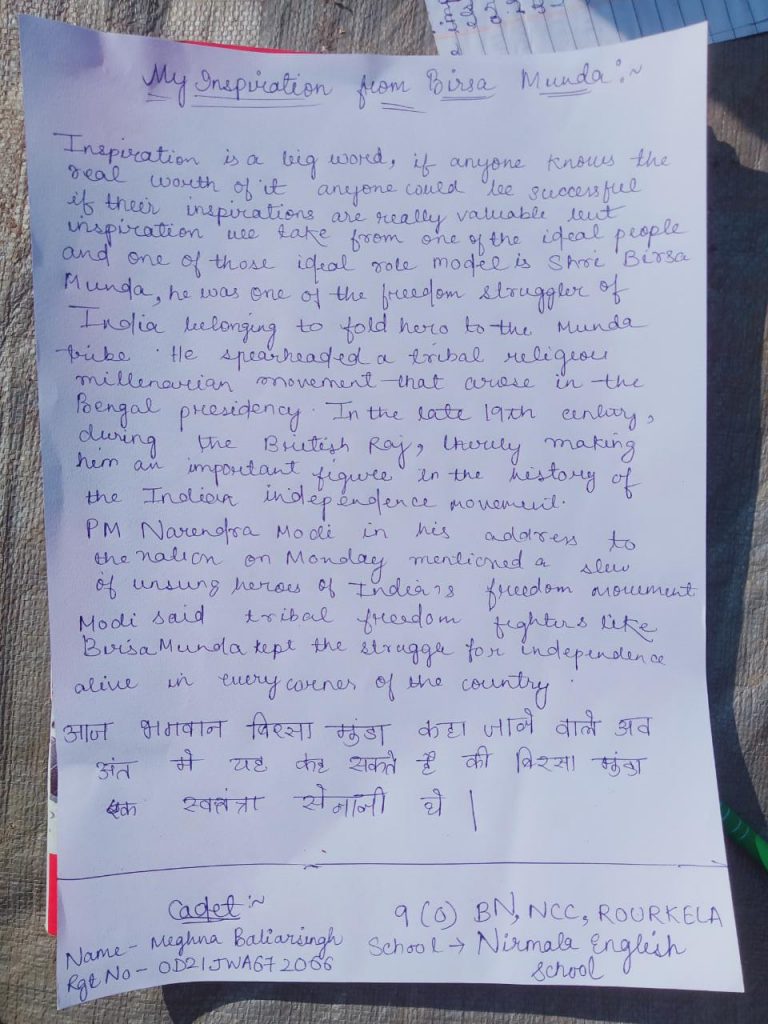 My Inspiration from Birsa Munda:~
Inspiration is a big word, if anyone knows the
real worth of it anyone could be successful
if their inspirations are really valuable but
inspiration we take from one of the ideal people
and one of those ideal role model is Shri Birsa
Munda, he was one of the freedom struggler of
India belonging to fold hero to the Munda
tribe. He spearheaded a tribal religious
millenarian movement that arose in the
Bengal presidency. In the late 19th century,
during the British Raj, thereby making
him an important figure in the history of
the Indian independence movement.
PM Narendra Modi in his address to
the nation on Monday mentioned a slew
of unsung heroes of India's freedom movement
Modi said tribal freedom fighters like
Birsa Munda kept the struggle for independence
alive in every corner of the country.
आज भगवान बिरसा मुंडा कहा जाने वाले अब
अंत मे यह कह सकते है की बिरसा मुंडा
एक स्वतंत्रा सेनानी थे |
Cadet:~
Name- Meghna Baliarsingh
Rgt No- OD21JWA672006
9 (O) BN, NCC, ROURKELA
School → Nirmala English
School